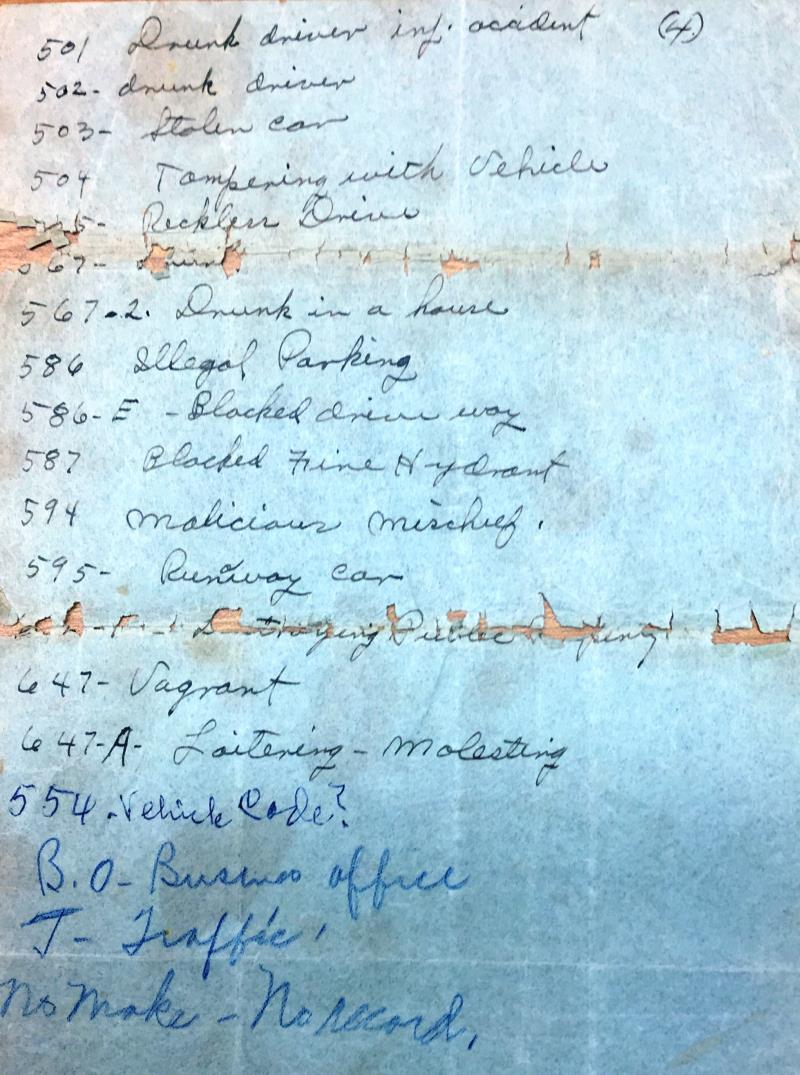 501 Drunk driver inj. accident (4)
502- drunk driver
503- Stolen car
504 Tampering with Vehicle
5- Reckless Drive
567- Drunk
567-2. Drunk in a house
586 Illegal Parking
586-E - Blocked drive way
587 Blocked Fire Hydrant
594 malicious mischief.
595- Runway car
Destroying Public Property
647- Vagrant
647-A- Loitering - molesting
554-Vehicle Code?
B.O- Business office
T- Traffic
No Make - No record.